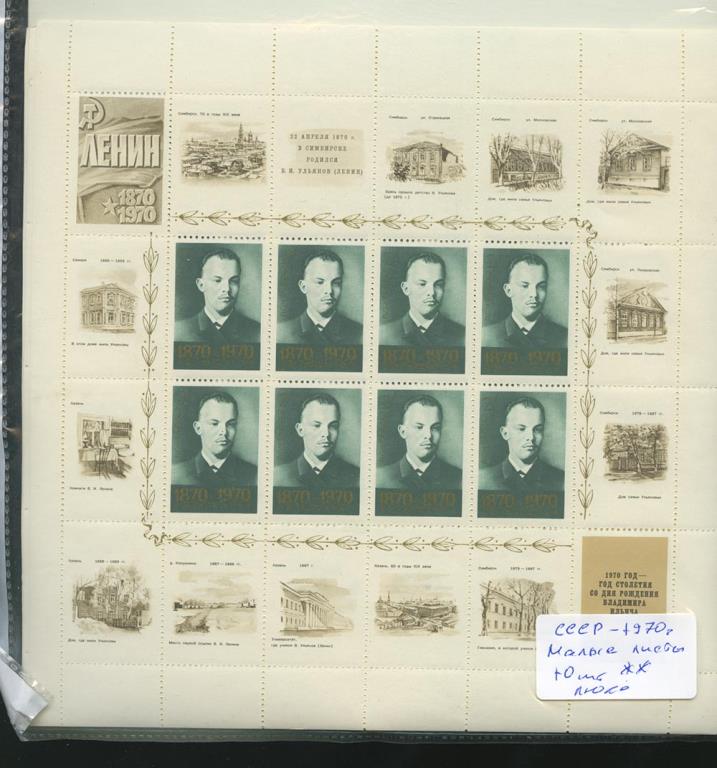 ЛЕНИН
1870
1970
Симбирск. 70-е годы XIX века
22 АПРЕЛЯ 1870 г.
В СИМБИРСКЕ
РОДИЛСЯ
В. И. УЛЬЯНОВ (ЛЕНИН)
Симбирск ул. Стрелецкая
Здесь прошло детство В. Ульянова
(до 1875 г.)
Симбирск ул. Московская
Дом, где жила семья Ульяновых
Симбирск ул. Московская
Дом, где жила семья Ульяновых
Самара
В этом доме жили Ульяновы
1870–1970
1870–1970
1870–1970
1870–1970
Симбирск ул. Покровская
Дом, где жила семья Ульяновых
Казань
Комната В. И. Ленина
1870–1970
1870–1970
1870–1970
1870–1970
Симбирск 1878–1887 гг.
Дом семьи Ульяновых
Казань 1888–1889 гг.
Дом, где жили Ульяновы
д. Кокушкино 1887–1888 гг.
Место первой ссылки В. И. Ленина
Казань 1887 г.
Университет,
где учился В. Ульянов (Ленин)
Казань. 80-е годы XIX века
Симбирск 1879–1887 гг.
Гимназия, в которой учился
1970 ГОД—
ГОД СТОЛЕТИЯ
СО ДНЯ РОЖДЕНИЯ
ВЛАДИМИРА
ИЛЬИЧА
СССР – 1970г
Малые листы
10 шт. жж
люкс